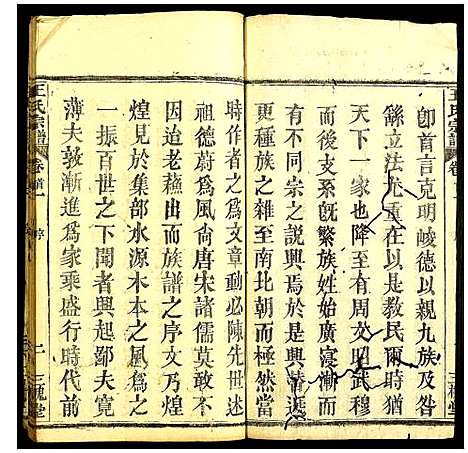 卽首言克明峻德以親九族及咎
繇立法尤重在以是敎民爾時猶
天下一家也降至有周文昭武穆
而後支系旣繁族姓始廣寖漸而
有不同宗之說興焉於是興
更有族世之雜至南北朝而極然當
時作者之為文章動必陳先世述
祖德蔚為風尚唐宋諸儒莫敢
因迨老蘇出而族譜之序文乃煌
煌見於集部水源木本之風為之
一振百世之下聞者興起鄙夫寬
薄夫敦漸進為家乘盛行時代前
王氏宗譜
卷首
序
二
三槐堂
王氏宗譜
卷首